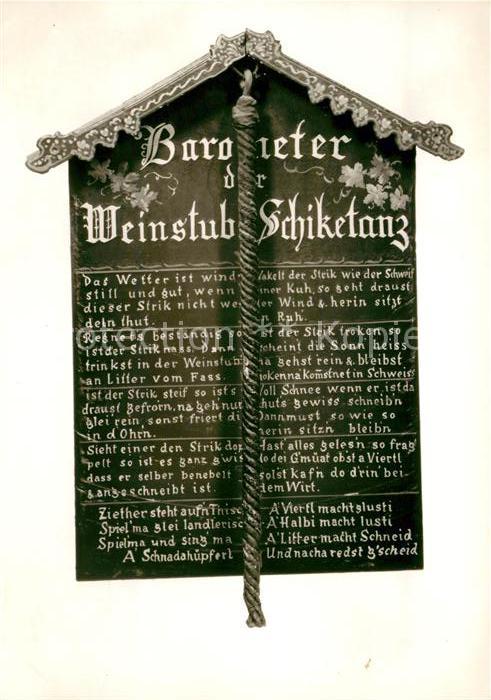 Barometer
der
Weinstub Schiketanz
Das Wetter ist wind
still und gut, wenn
dieser Strik nicht we
deln thut.
Wakelt der Strik wie der Schweif
einer Kuh, so geht draust
der Wind & herin sitzt
Ruh.
Regnets beständig so
ist der Strik nass. Dann
trinkst in der Weinstub
an Litter vom Fass
Ist der Strik troken so
scheint die Sonn heiss
na gehst rein & bleibst
troken na kom̄st net in Schweiss
ist der Strik steif so ist's
draust gefrorn, na geh nur
glei rein, sonst friert di
in d'Ohrn.
Voll Schnee wenn er ist da
thuts gewiss schneib'n
Dann must so wie so
herin sitzn bleibn
Sieht einer den Strik dop
pelt so ist es ganz gwis
dass er selber benebelt
& angeschneibt ist.
Hast alles gelesn so frag
do dei G'müat obst a Viertl
solst kafn do drin' bei
dem Wirt.
Ziether steht auf'n Thisch
Spiel'ma glei landlerisch
Spiel'ma und sing ma
A' Schnadahüpferl
A' Viertl macht glusti
A' Halbi macht lusti
A' Litter macht Schneid
Und nacha redst g'scheid